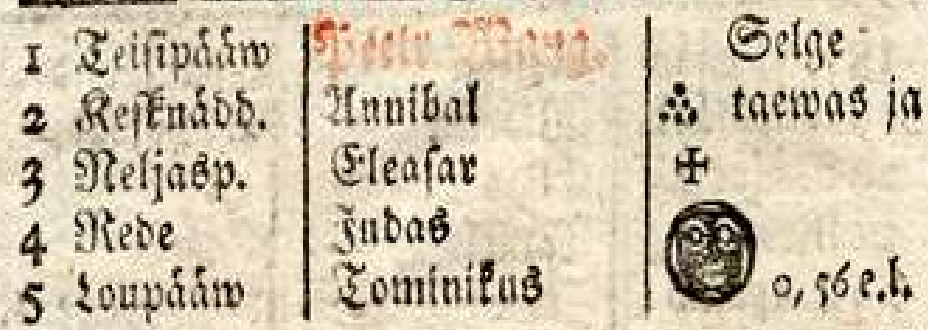 1 Teisipääw Peetr Wang. Selge
2 Kesknädd. Annibal taewas ja
3 Neljasp. Eleasar ✠
4 Rede Judas
5 Loupääw Tominikus 0,56 e.l.